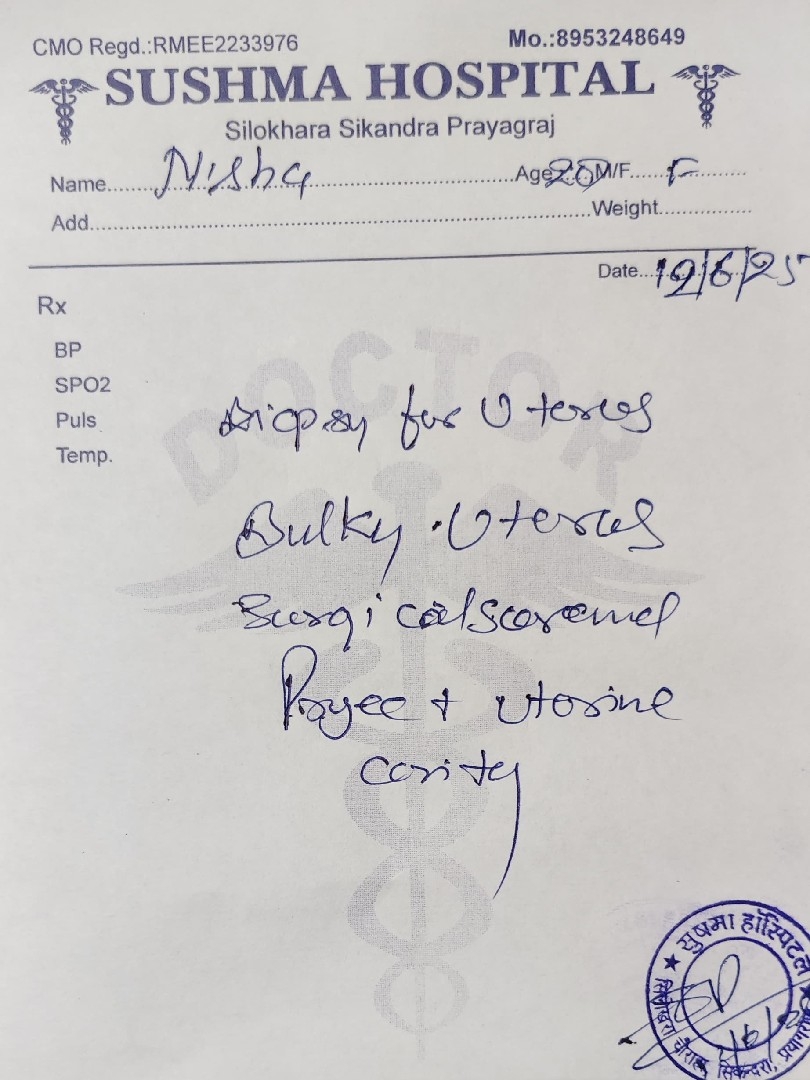 CMO Regd.:RMEE2233976 Mo.:8953248649
SUSHMA HOSPITAL
Silokhara Sikandra Prayagraj
Name......Nisha......Age 20 M/F....F......
Add......Weight......
Date...12/6/25
Rx
BP
SPO2
Puls
Temp.
DOCTOR
Biopsy for Uterus
Bulky Uterus
Surgical
uterine
सुषमा हॉस्पिटल
सिकन्दरा, प्रयागराज